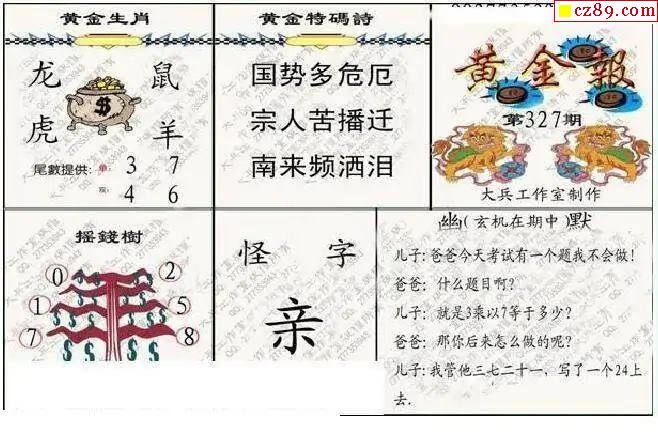 cz89.com
黄金生肖
龙 鼠
虎 羊
尾數提供：單：3 7
双：4 6
黄金特碼詩
国势多危厄
宗人苦播迁
南来频洒泪
黄金報
第327期
大兵工作室制作
摇錢樹
0 2
1 5
7 8
怪 字
亲
幽(玄机在期中)默
儿子：爸爸今天考试有一个题我不会做！
爸爸： 什么题目啊？
儿子：就是3乘以7等于多少？
爸爸：那你后来怎么做的呢？
儿子：我管他三七二十一，写了一个24上
去.